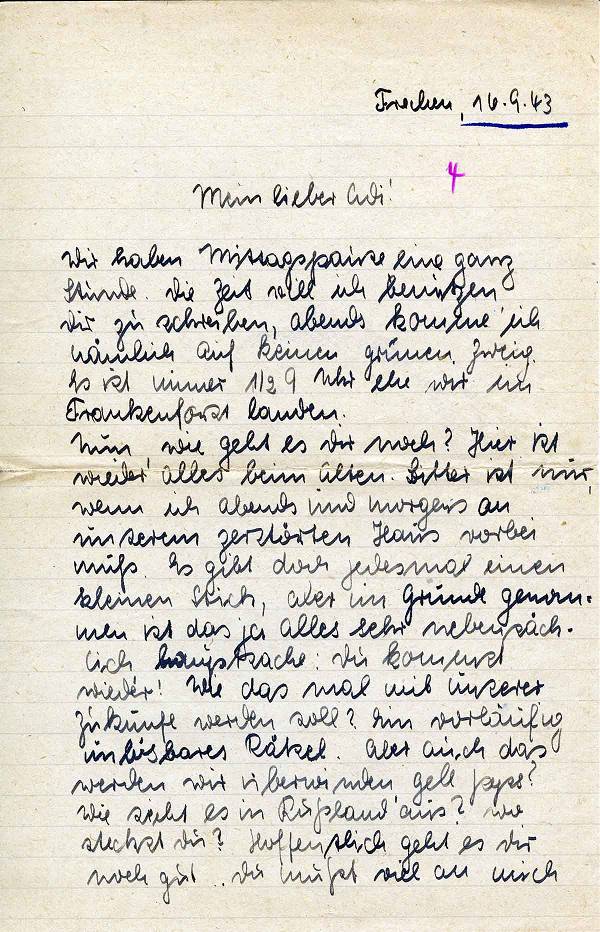 Frechen, 16.9.43
4
Mein lieber Adi!
Wir haben Mittagspause eine ganz
Stunde. Die Zeit will ich benützen
dir zu schreiben, abends komme ich
nämlich auf keinen grünen Zweig.
Es ist immer 1/2 9 Uhr ehe wir in
Frankenforst landen.
Nun, wie geht es dir noch? Hier ist
wieder alles beim Alten. Bitter ist nur,
wenn ich abends und morgens an
unserem zerstörten Haus vorbei
muß. Es gibt doch jedesmal einen
kleinen Stich, aber im Grunde genom-
men ist das ja alles sehr nebensäch-
lich hauptsache: du kommst
wieder! Wie das mal mit unserer
Zukunft werden soll? Ein vorläufig
unlösbares Rätsel. Aber auch das
werden wir überwinden gell
Wie sieht es in Rußland aus? Wo
steckst du? Hoffentlich geht es dir
noch gut.. du mußt viel an mich